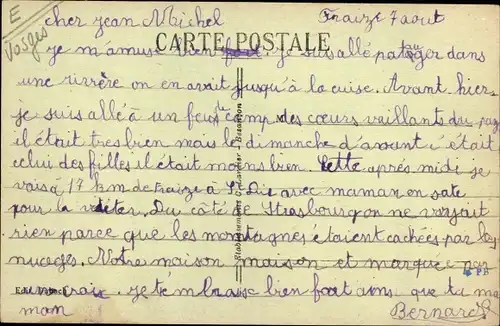 E
Vosges
cher Jean Michel Fraize 7 aout
CARTE POSTALE
je m'amuse bien foot. je suis allé patauger dans
une rivière on en avait jusqu'à la cuise. Avant hier
je suis allé à un feu de camp des cœurs vaillants du pays
il était tres bien mais le dimanche d'avant c'était
celui des filles il était moins bien. Cette après midi je
vais à 17 km de Fraize à St Dié avec maman en
pour la visiter. Du côté de Strasbourg on ne voyait
rien parce que les montagnes étaient cachées par les
nuages. Notre maison maison et marquée par
une croix. je t'embrasse bien fort ainsi que ta ma
man Bernard